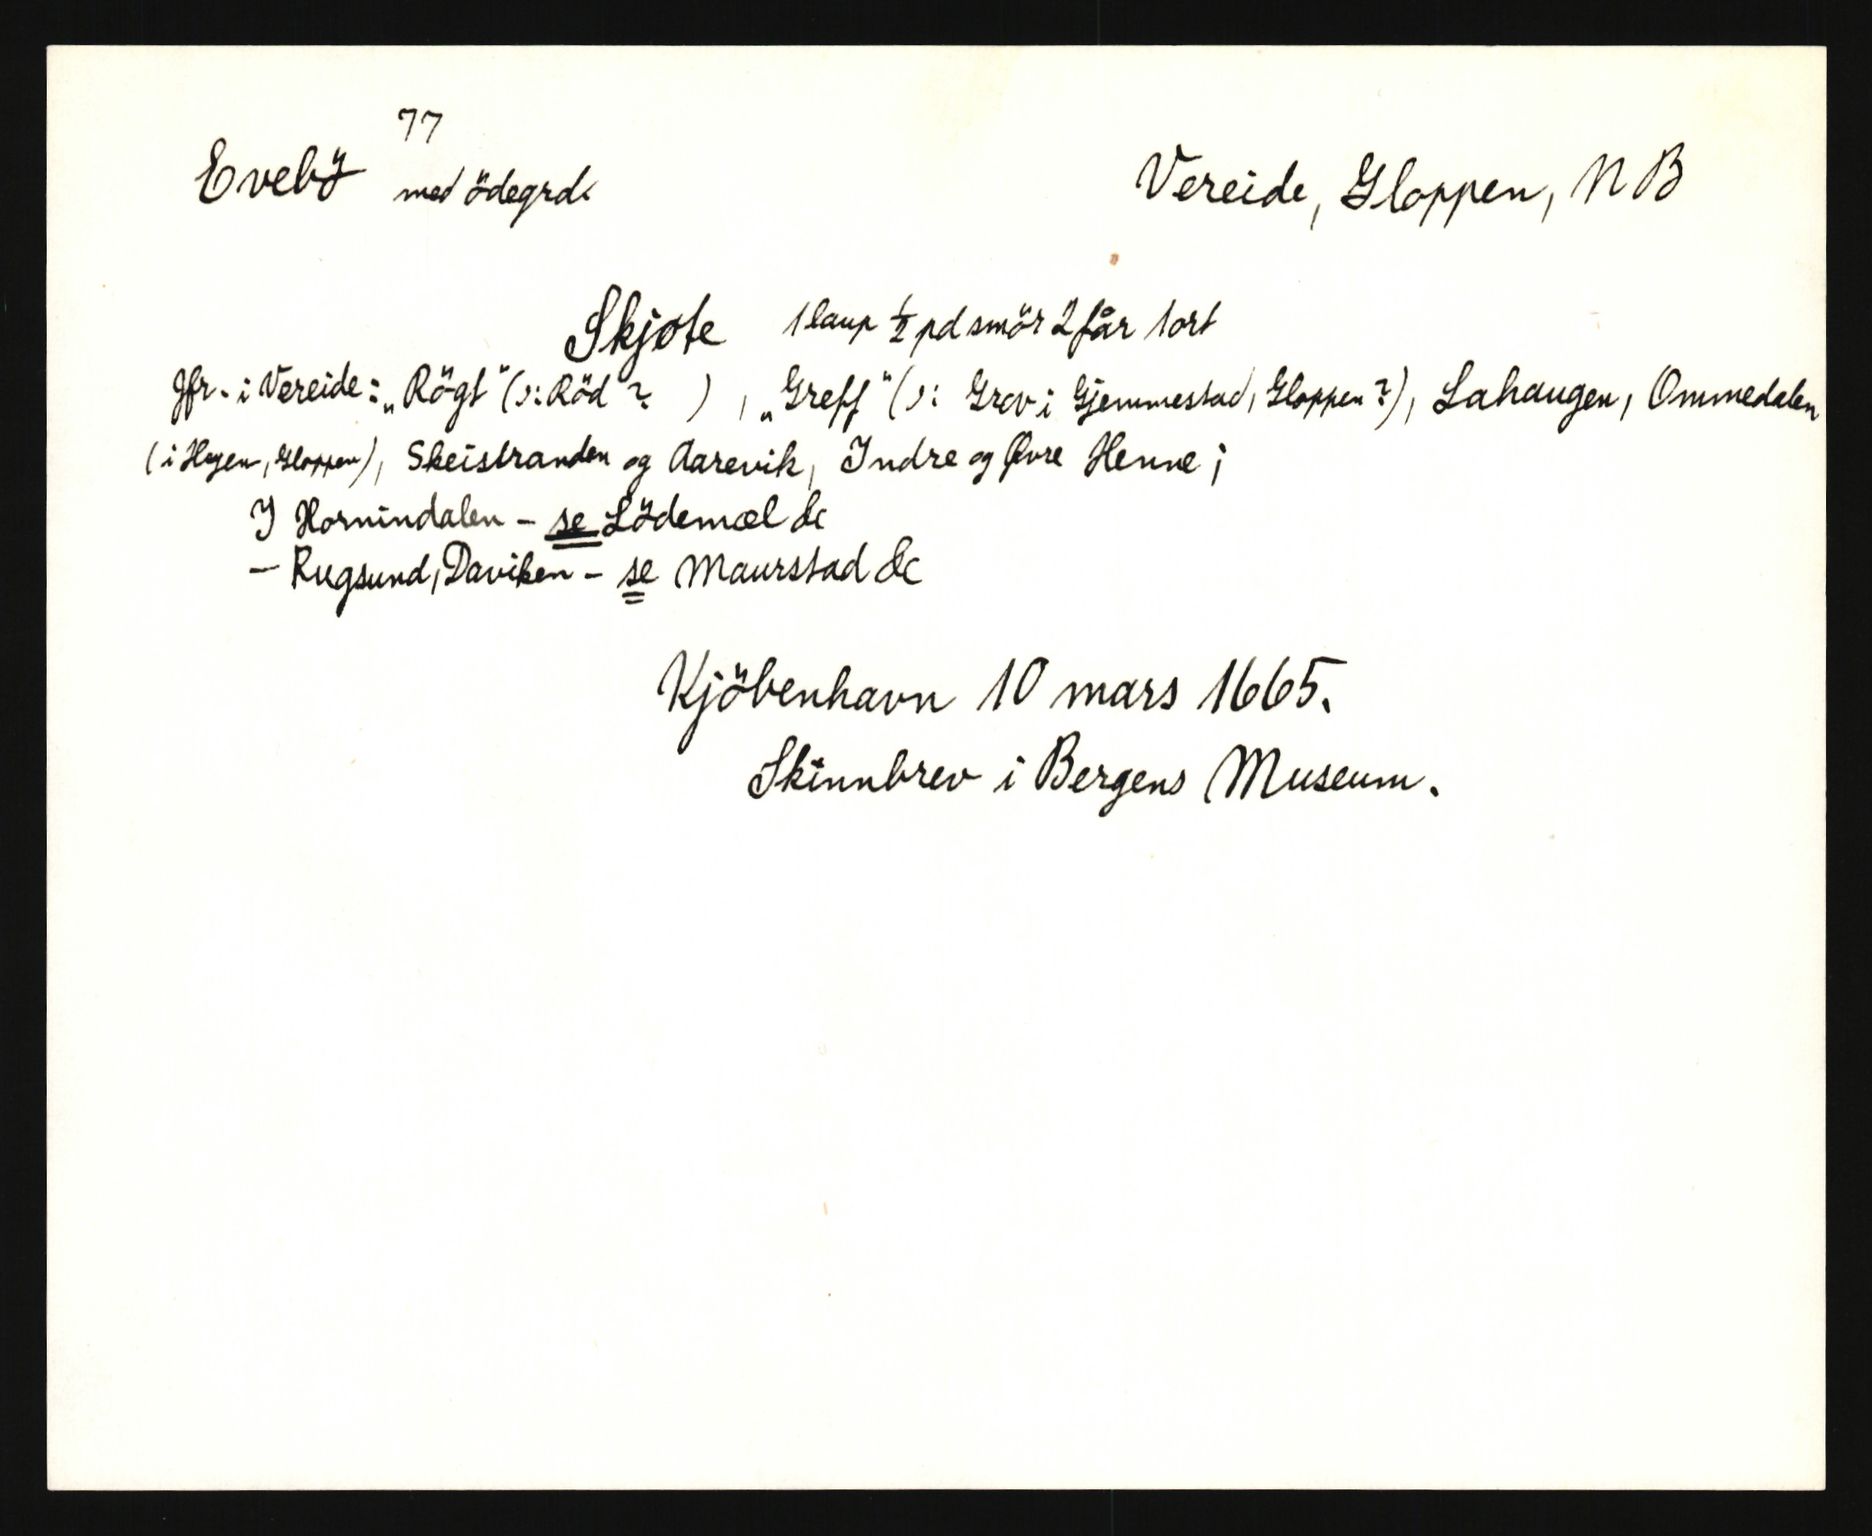 77
Evebö med ödegrd.
Vereide, Gloppen, N B
Skjøte 1 laup ½ pd smör 2 får 1 ort
Jfr. i Vereide: „Rögt" (ɔ: Röd ? ) , „Greff" (ɔ: Grov i Gjemmestad, Gloppen?), Lahaugen, Ommedalen
(i Hyen, Gloppen), Skeistranden og Aarevik, Indre og Øvre Henne;
I Hornindalen - se Lödemæl &c
- Rugsund, Daviken - se Maurstad &c
Kjöbenhavn 10 mars 1665.
Skinnbrev i Bergens Museum.